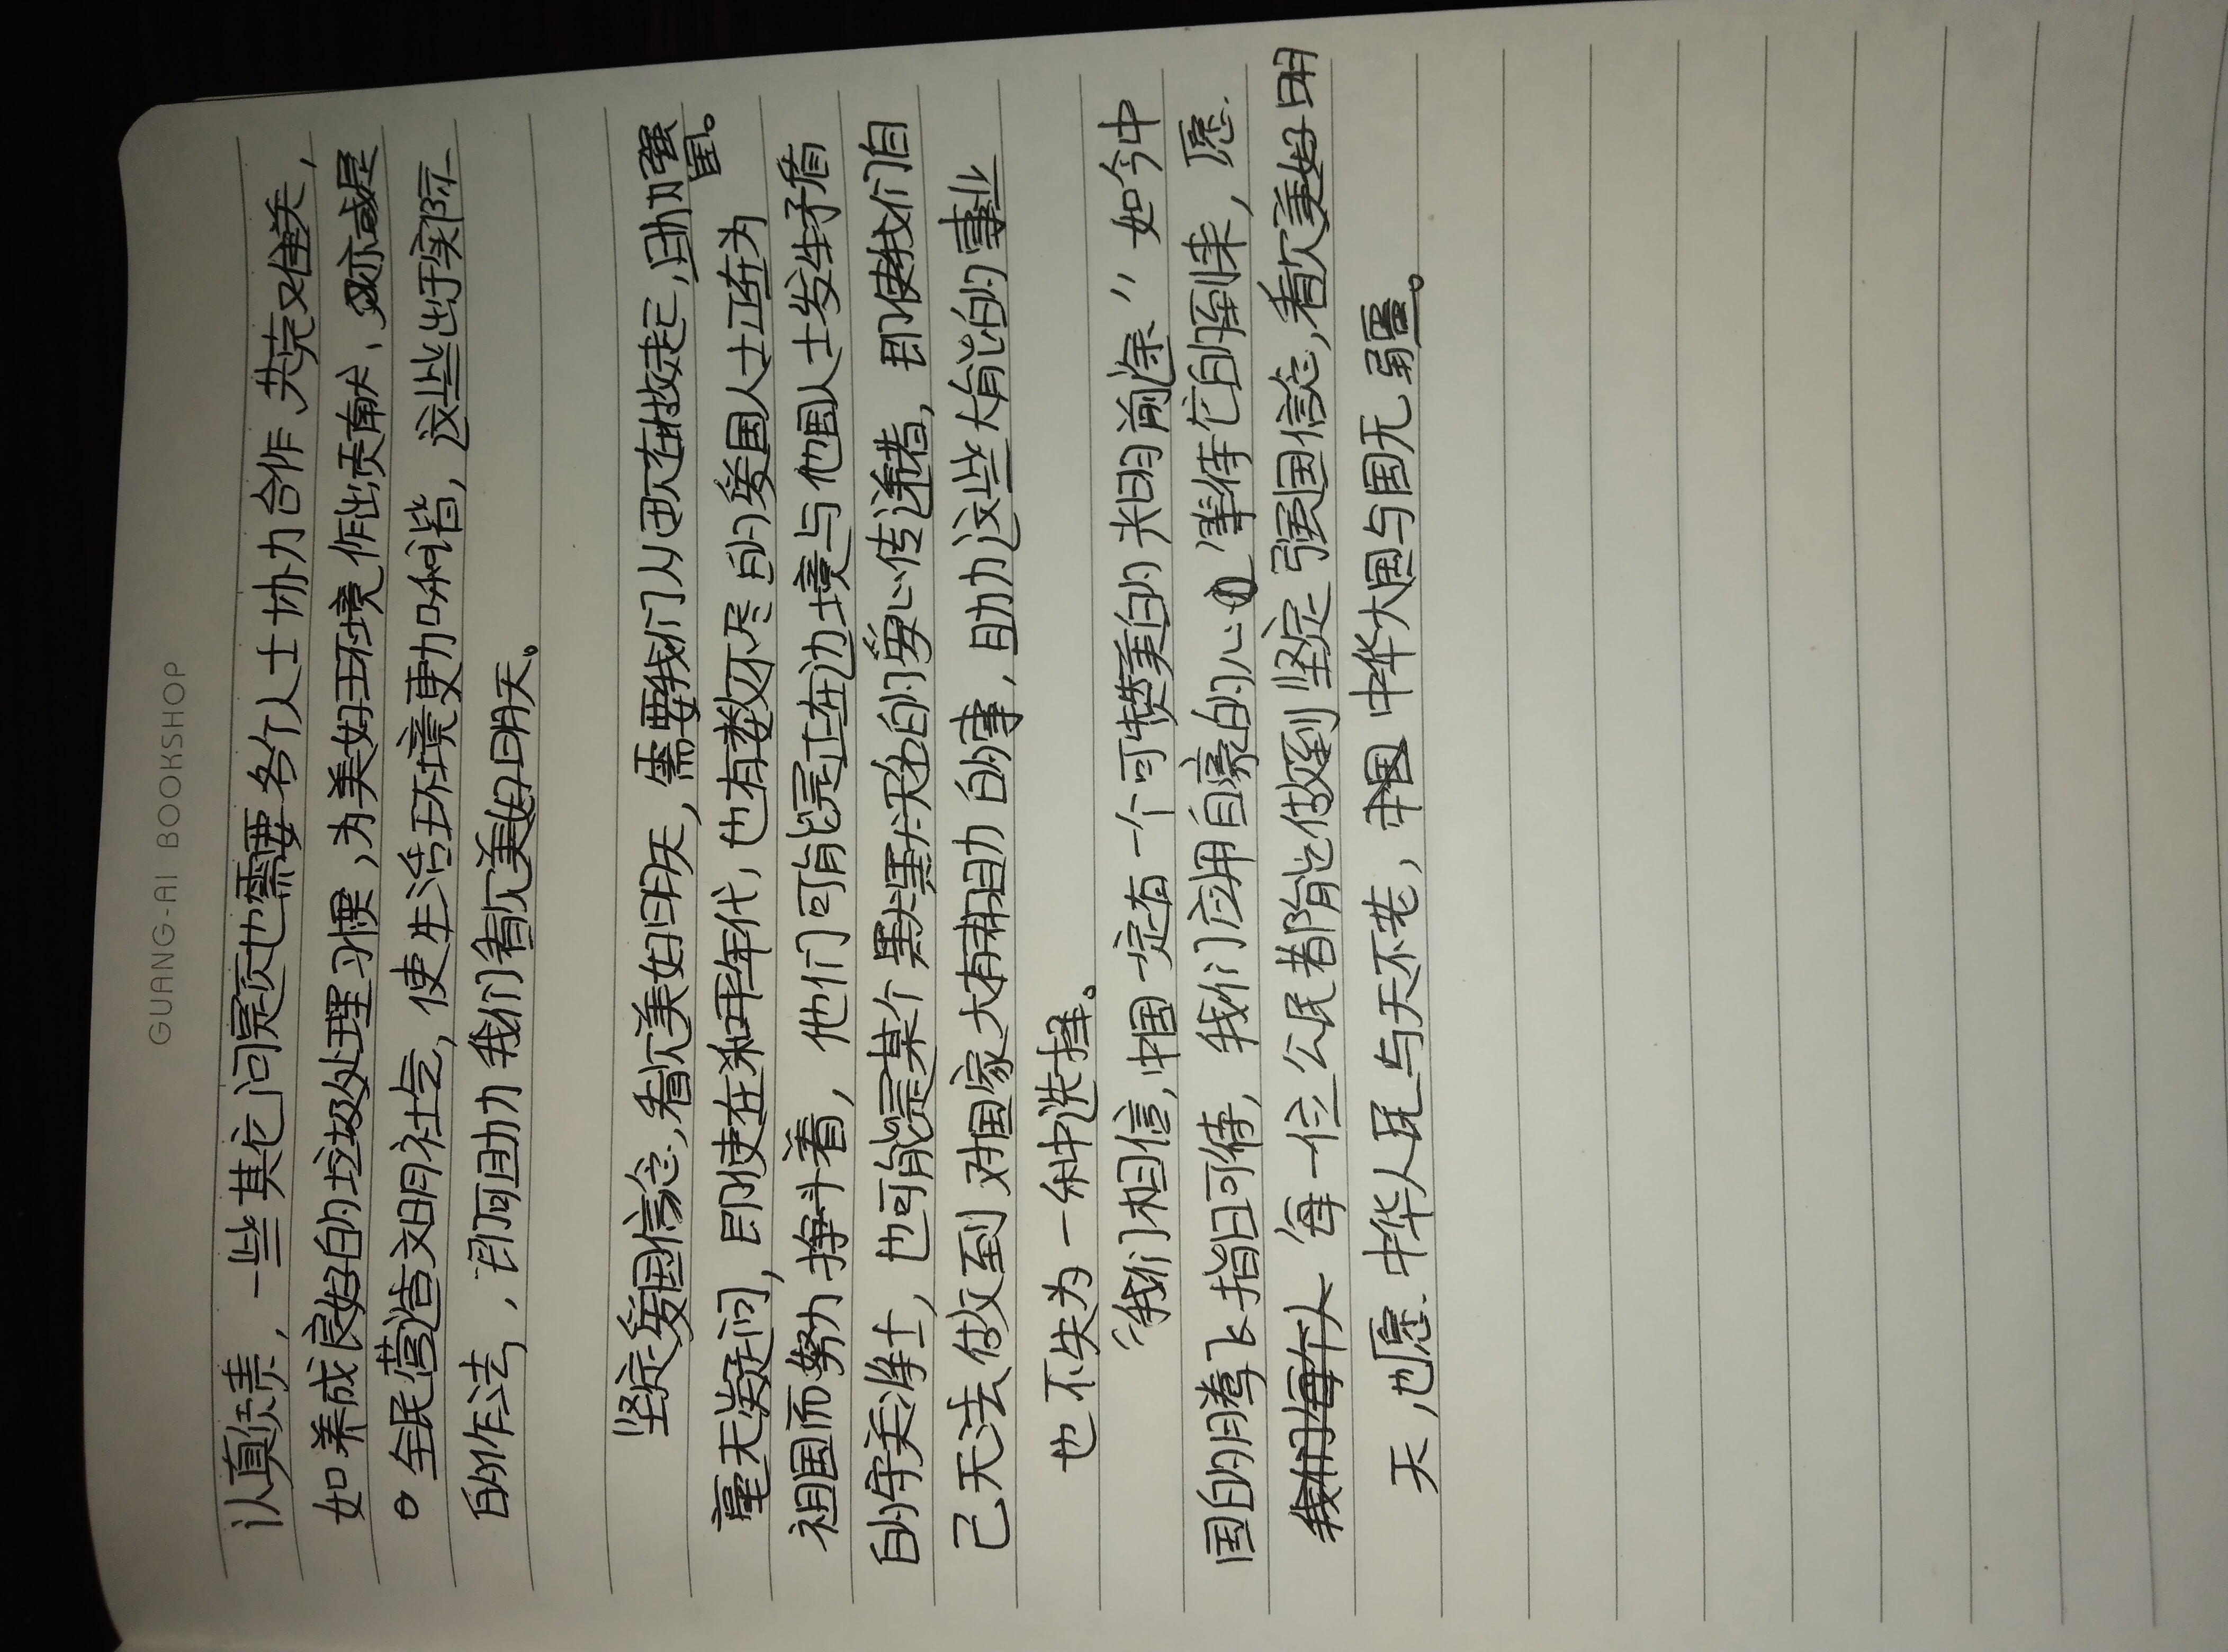 GUANG-AI BOOKSHOP
认真负责，一些其它问题也需要各个人士协力合作、共克难关，
如养成良好的垃圾处理习惯，为美好环境作出贡献、亦或是
全民营造文明社气，使生活环境更加和谐，这些出于实际
的作法，即可助力我们看见美好明天。
坚定爱国信念，看见美好明天，需要我们从现在做起，助力强国。
毫无疑问，即使在和平年代，也有数不尽的爱国人士正在为
祖国而努力挣斗着，他们可能是正在边境与他国人士发生矛盾
的守关将士，也可能是某个默默无名的爱心传递者，即使我们自
己无法做到对国家大有帮助的事，助力这些大有能的的事业
也不失为一种选择。
“我们相信，中国一定有一个可赞美的光明前途” 如今中
国的腾飞指日可待，我们应用自豪的心等待它的到来，愿
我们每个人 每一位公民都能做到坚定强国信念，看见美好明
天，也愿 中华人民与天不老，中国 中华大国与国无疆。